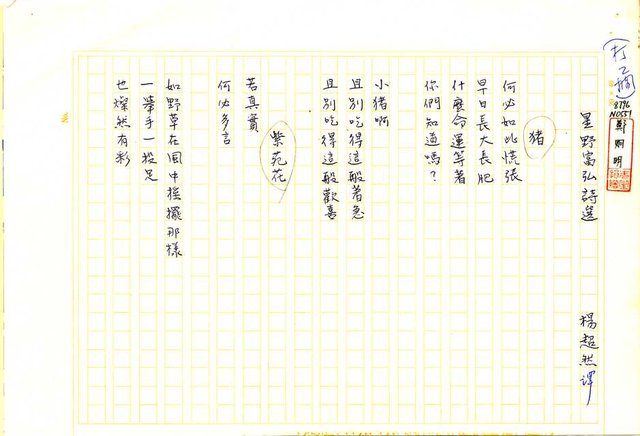 (打乙欄)
8796
N0551
鄭烱明
星野富弘詩選
楊超然譯
豬
何必如此慌張
早日長大長肥
什麼命運等著
你們知道嗎?
小豬啊
且別吃得這般著急
且別吃得這般歡喜
紫苑花
若真實
何必多言
如野草在風中搖擺那樣
一舉手一投足
也燦然有彩